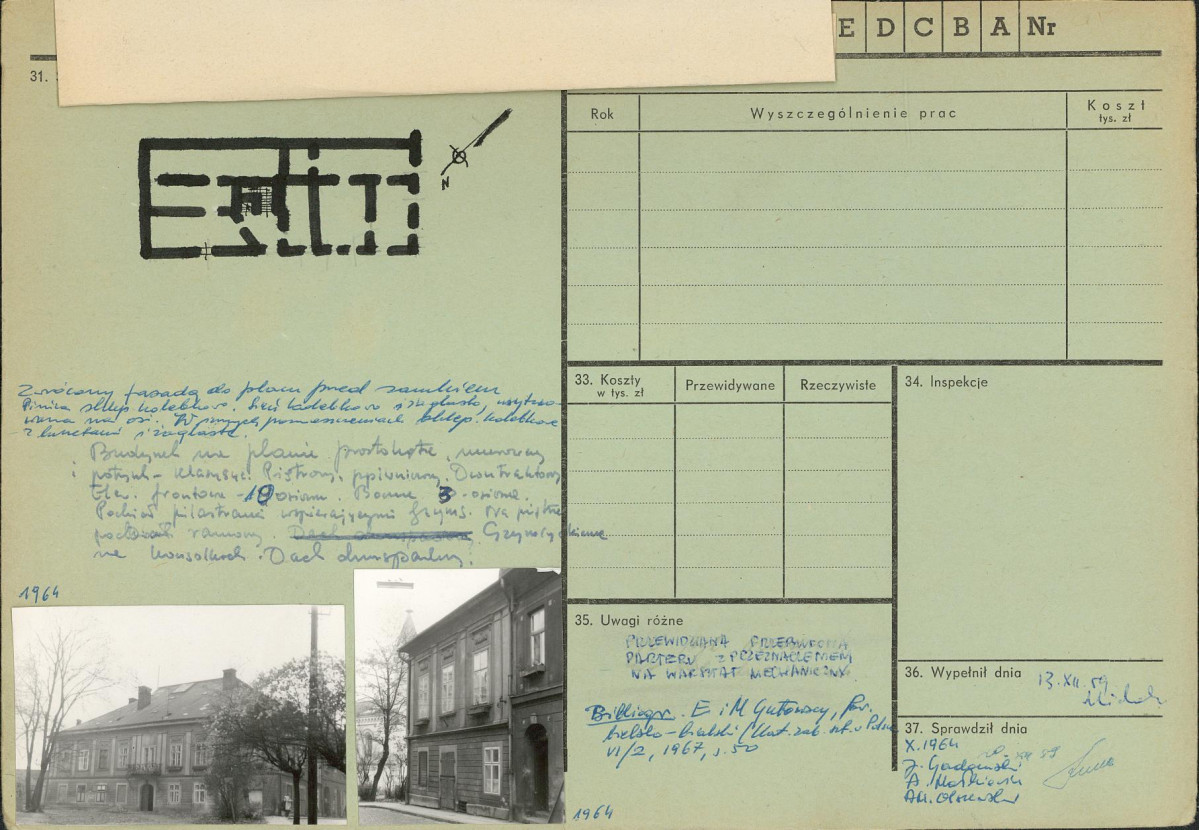 E D C B A Nr
31.
N
Zwrócony fasadą do placu przed zamkiem
Piwnica sklep. kolebkowo. Sień kolebkowo i żaglasto, usytuo-
wana na osi. W innych pomieszczeniach sklep. kolebkowe
z lunetami i żaglaste.
Budynek na planie prostokąta, murowany
i potynk. klasycyst. Piętrowy, ppiwniczony. Dwutraktowy
Elew. frontowa - 10 osiowa. Boczne 3-osiowe.
Podział pilastrami wspierającymi gzyms. Na piętrze
podział ramowy. Gzyms
na konsolkach. Dach dwuspadowy.
1964
Rok
Wyszczególnienie prac
Koszt
tys. zł
33. Koszty
w tys. zł
Przewidywane
Rzeczywiste
34. Inspekcje
35. Uwagi różne
PRZEWIDZIANA PRZEBUDOWA
PARTERU Z PRZEZNACZENIEM
NA WARSZTAT MECHANICZNY
Bibliogr. E i M Gutowscy, Pow.
bielsko-bialski (Kat. zab. szt. w Polsce
VI/2, 1967, s. 50
1964
36. Wypełnił dnia
13.XII.59
37. Sprawdził dnia
X.1964
J. Gadomski
A. Małkiewicz
AM. Olszewski